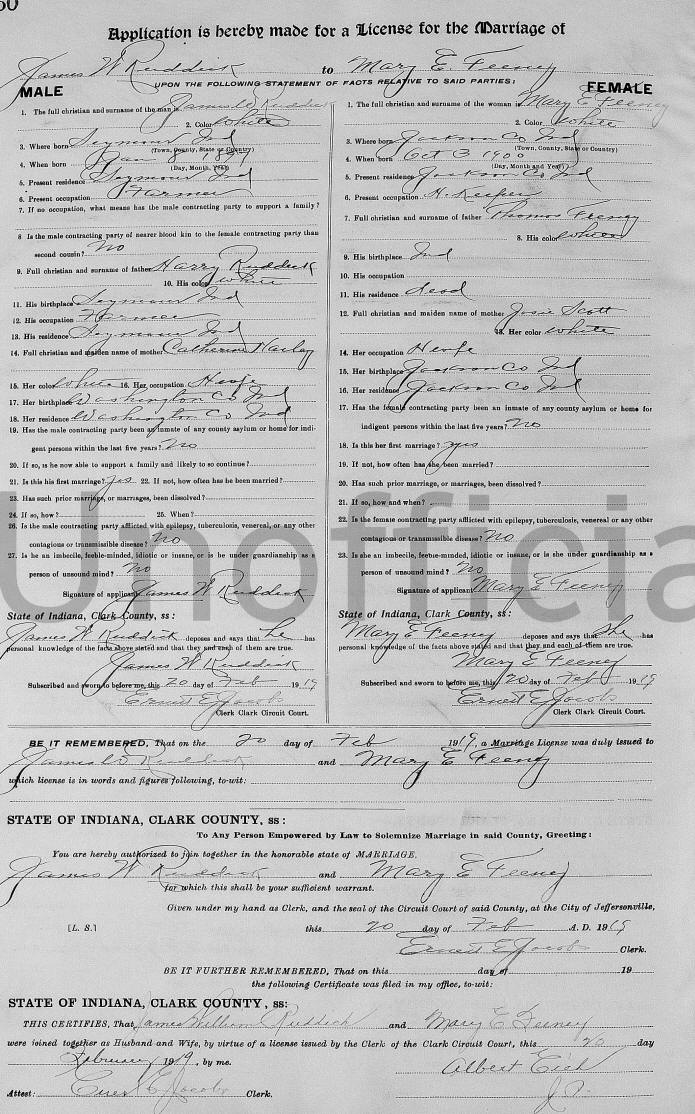 60
Application is hereby made for a License for the Marriage of
James W Ruddick to Mary E. Feeney
UPON THE FOLLOWING STATEMENT OF FACTS RELATIVE TO SAID PARTIES:
MALE
1. The full christian and surname of the man is James W Ruddick
2. Color White
3. Where born Seymour Ind
(Town, County, State or Country)
4. When born Jan 8 1897
(Day, Month, Year)
5. Present residence Seymour Ind
6. Present occupation Farmer
7. If no occupation, what means has the male contracting party to support a family?
8 Is the male contracting party of nearer blood kin to the female contracting party than
second cousin? No
9. Full christian and surname of father Harry Ruddick
10. His color White
11. His birthplace Seymour Ind
12. His occupation Farmer
13. His residence Seymour Ind
14. Full christian and maiden name of mother Catherine
15. Her color White 16. Her occupation
17. Her birthplace Washington Co Ind
18. Her residence Washington Co Ind
19. Has the male contracting party been an inmate of any county asylum or home for indi-
gent persons within the last five years? No
20. If so, is he now able to support a family and likely to so continue?
21. Is this his first marriage? yes 22. If not, how often has he been married?
23. Has such prior marriage, or marriages, been dissolved?
24. If so, how? 25. When?
26. Is the male contracting party afflicted with epilepsy, tuberculosis, venereal, or any other
contagious or transmissible disease? No
27. Is he an imbecile, feeble-minded, idiotic or insane, or is he under guardianship as a
person of unsound mind? No
Signature of applicant James W Ruddick
State of Indiana, Clark County, ss:
James W. Ruddick deposes and says that he has
personal knowledge of the facts above stated and that they and each of them are true.
James W Ruddick
Subscribed and sworn to before me, this 20 day of Feb 1919
Ernest E Jacobs
Clerk Clark Circuit Court.
FEMALE
1. The full christian and surname of the woman is Mary E Feeney
2. Color White
3. Where born Jackson Co Ind
(Town, County, State or Country)
4. When born Oct 3 1900
(Day, Month and Year)
5. Present residence Jackson Co Ind
6. Present occupation H. Keeper
7. Full christian and surname of father Thomas Feeney
8. His color White
9. His birthplace Ind
10. His occupation
11. His residence Dead
12. Full christian and maiden name of mother Josie Scott
13. Her color White
14. Her occupation
15. Her birthplace Jackson Co Ind
16. Her residence Jackson Co Ind
17. Has the female contracting party been an inmate of any county asylum or home for
indigent persons within the last five years? No
18. Is this her first marriage? yes
19. If not, how often has she been married?
20. Has such prior marriage, or marriages, been dissolved?
21. If so, how and when?
22. Is the female contracting party afflicted with epilepsy, tuberculosis, venereal or any other
contagious or transmissible disease? No
23. Is she an imbecile, feeble-minded, idiotic or insane, or is she under guardianship as a
person of unsound mind? No
Signature of applicant Mary E Feeney
State of Indiana, Clark County, ss:
Mary E Feeney deposes and says that She has
personal knowledge of the facts above stated and that they and each of them are true.
Mary E Feeney
Subscribed and sworn to before me, this 20 day of Feb 1919
Ernest E Jacobs
Clerk Clark Circuit Court.
Unofficia
BE IT REMEMBERED, That on the 20 day of Feb 1919, a Marriage License was duly issued to
James W Ruddick and Mary E Feeney
which license is in words and figures following, to-wit:
STATE OF INDIANA, CLARK COUNTY, ss:
To Any Person Empowered by Law to Solemnize Marriage in said County, Greeting:
You are hereby authorized to join together in the honorable state of MARRIAGE.
James W Ruddick and Mary E Feeney
for which this shall be your sufficient warrant.
Given under my hand as Clerk, and the seal of the Circuit Court of said County, at the City of Jeffersonville,
[L. S.] this 20 day of Feb A. D. 1919
Ernest E Jacobs Clerk.
BE IT FURTHER REMEMBERED, That on this day of 19
the following Certificate was filed in my office, to-wit:
STATE OF INDIANA, CLARK COUNTY, ss:
THIS CERTIFIES, That James William Ruddick and Mary E Feeney
were joined together as Husband and Wife, by virtue of a license issued by the Clerk of the Clark Circuit Court, this 20 day
February 1919, by me. Albert Eich
Attest: Ernest E Jacobs Clerk. J.P.